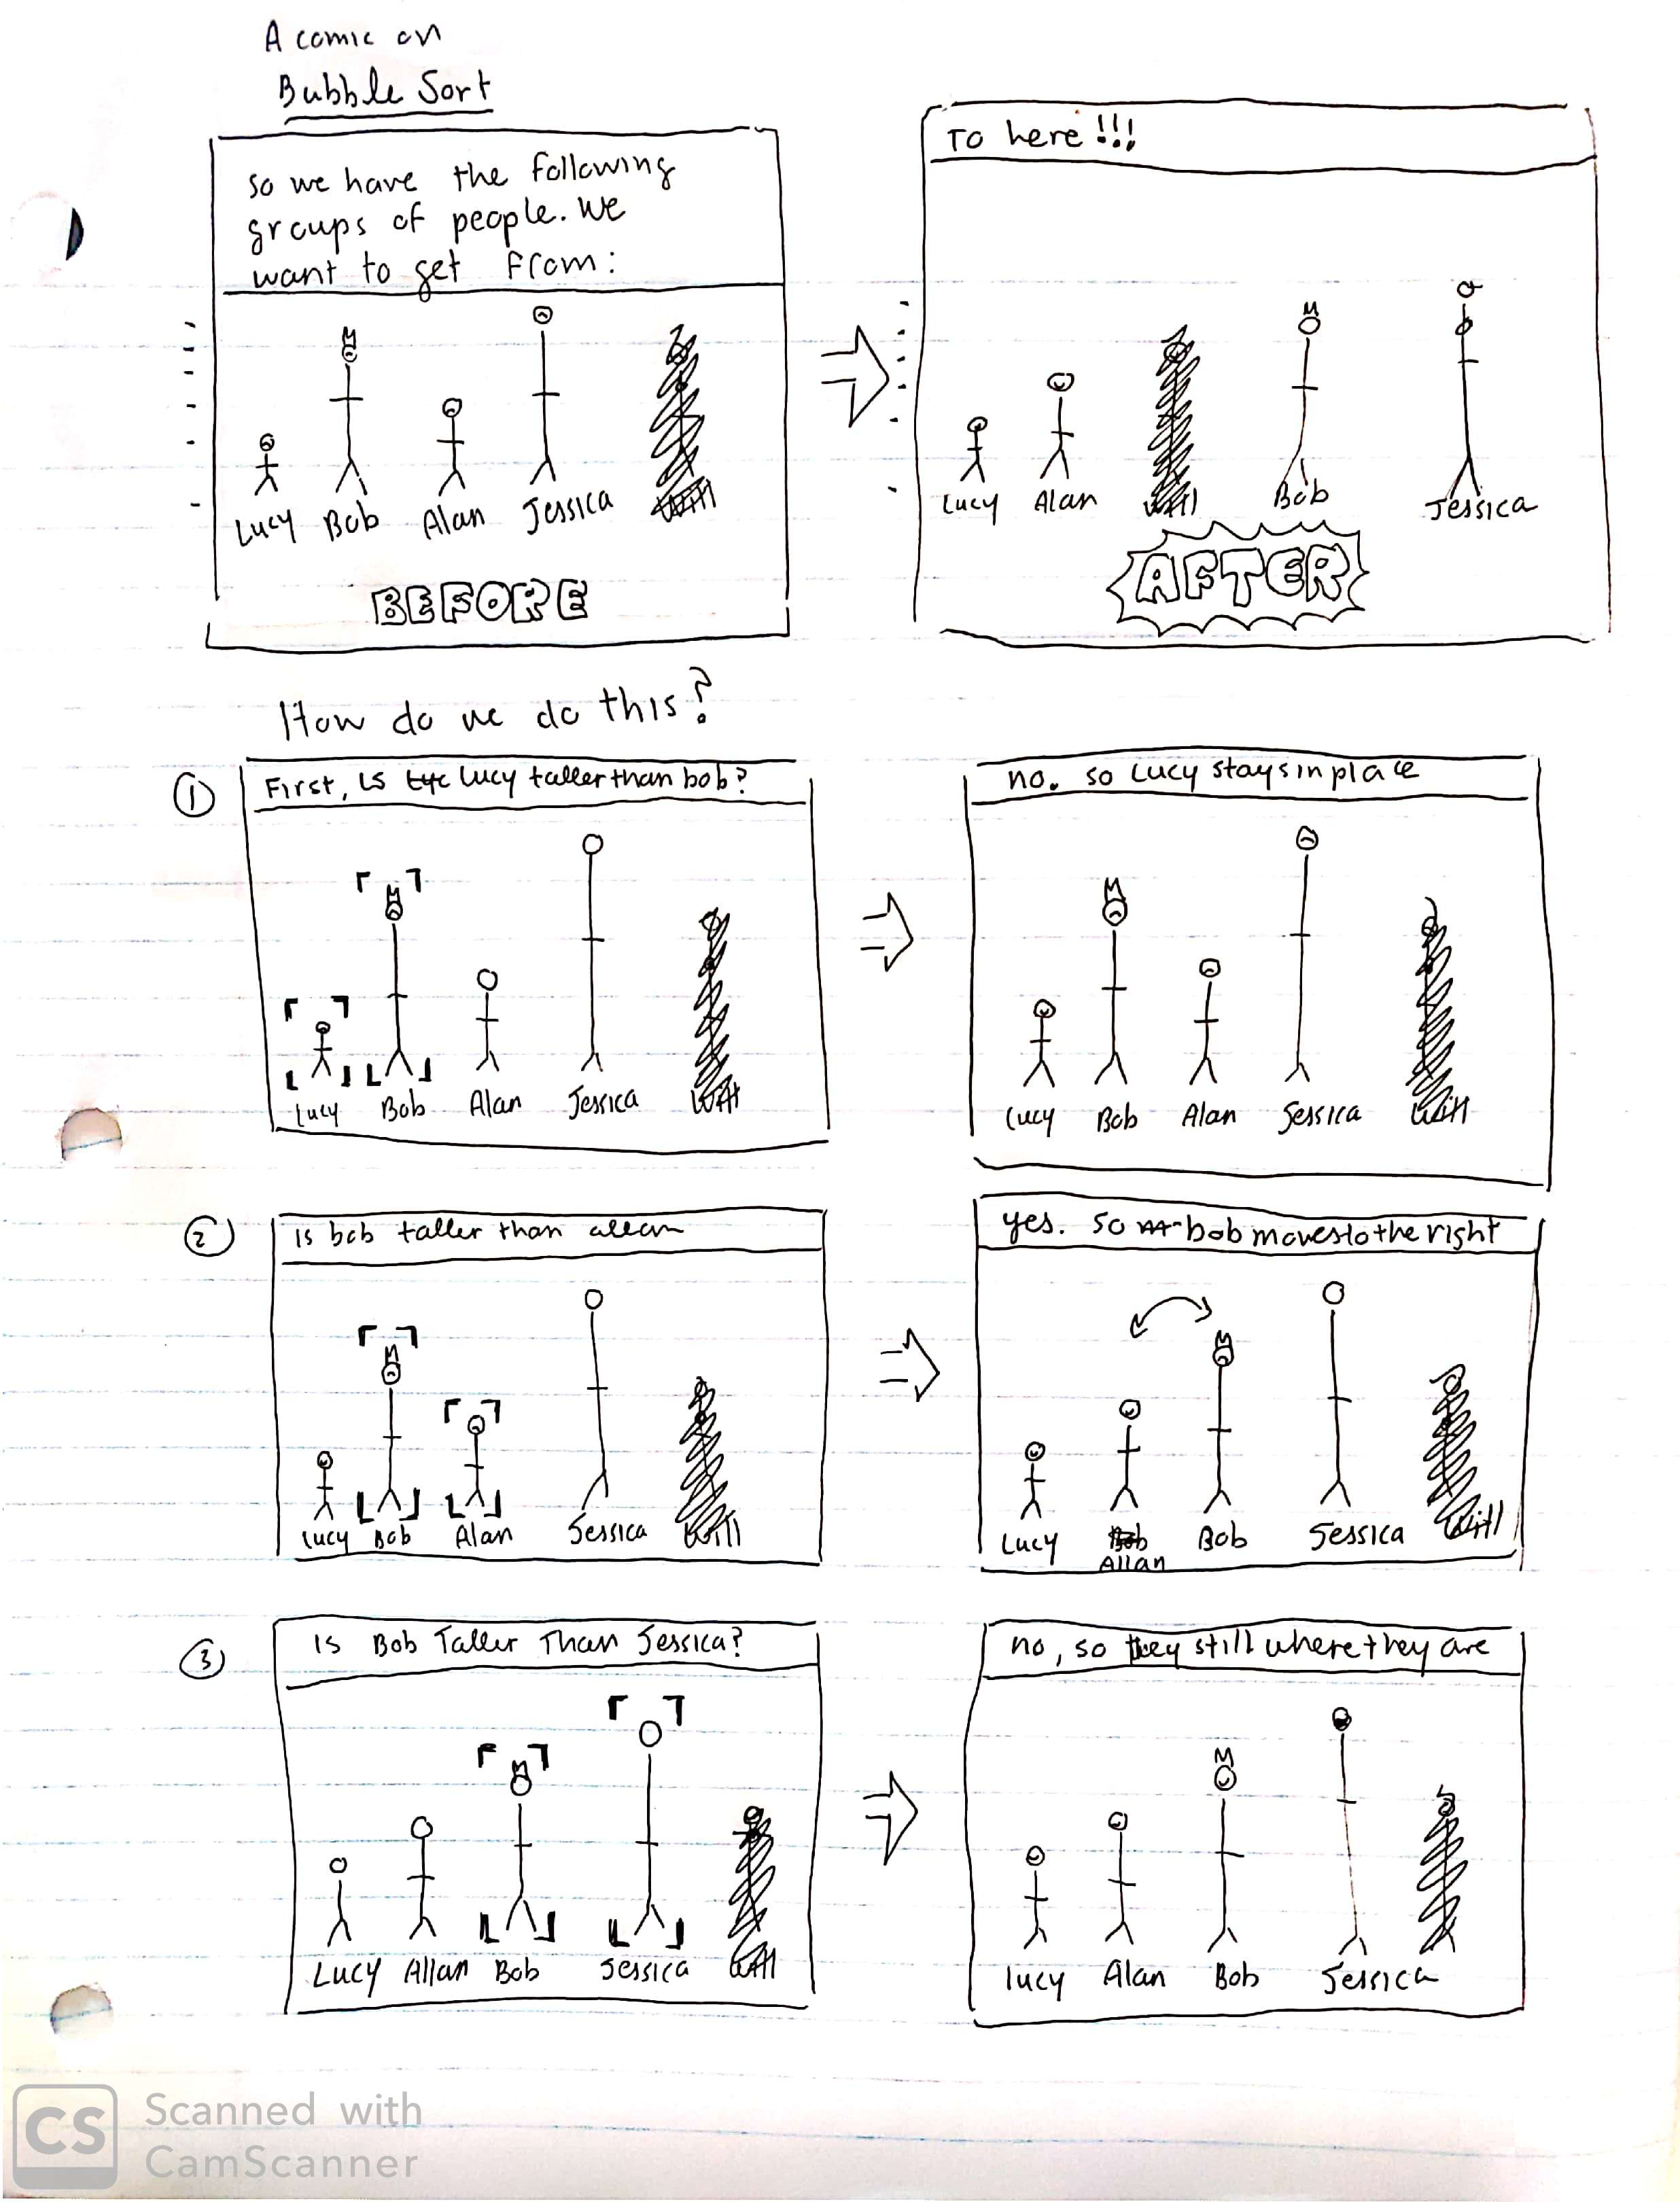 A comic on
Bubble Sort
so we have the following
groups of people. We
want to get from:
Lucy Bob Alan Jessica Will
BEFORE
To here!!!
Lucy Alan Will Bob Jessica
AFTER
How do we do this?
1
First, is Lucy taller than bob?
Lucy Bob Alan Jessica Will
no. so Lucy stays in place
Lucy Bob Alan Jessica Will
2
is bob taller than allan
Lucy Bob Alan Jessica Will
yes. so bob moves to the right
Lucy Bob Bob Jessica Will
Allan
3
is Bob Taller Than Jessica?
Lucy Allan Bob Jessica Will
no, so they still where they are
lucy Alan Bob Jessica
CS
Scanned with
CamScanner